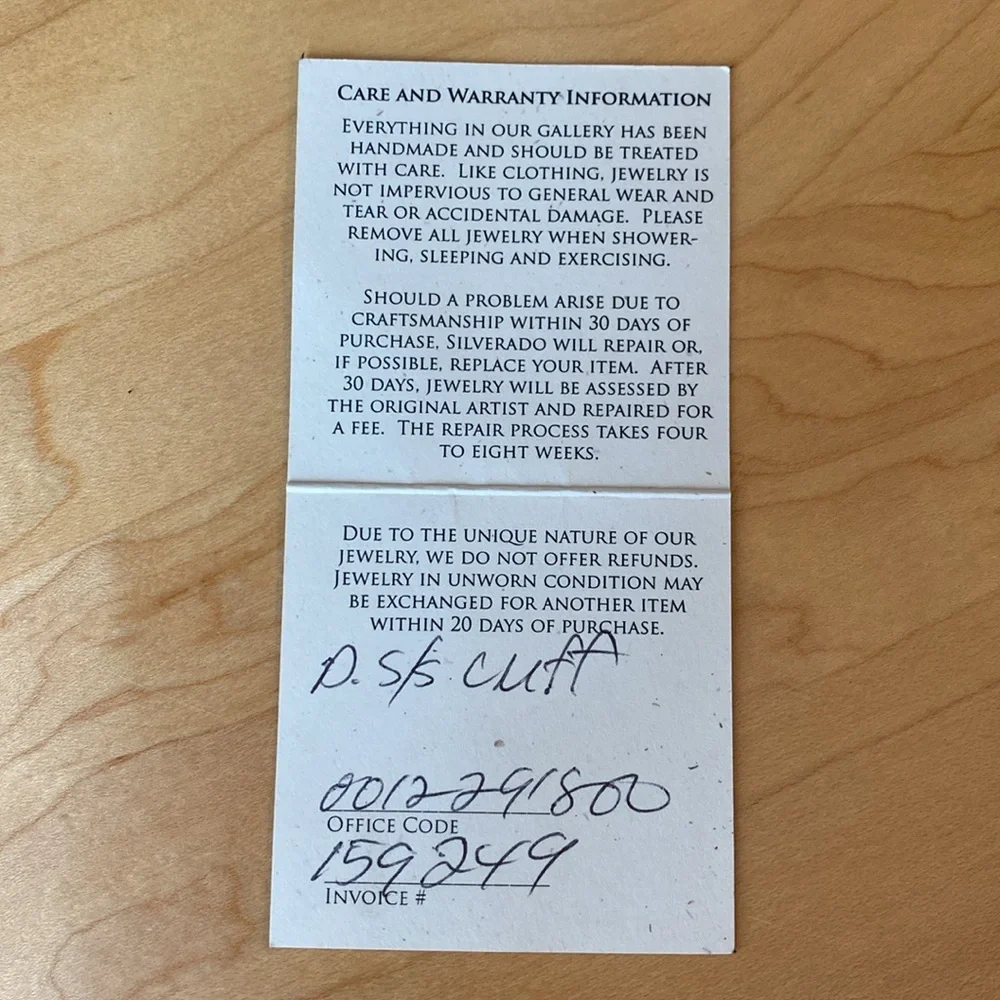 CARE AND WARRANTY INFORMATION
EVERYTHING IN OUR GALLERY HAS BEEN
HANDMADE AND SHOULD BE TREATED
WITH CARE. LIKE CLOTHING, JEWELRY IS
NOT IMPERVIOUS TO GENERAL WEAR AND
TEAR OR ACCIDENTAL DAMAGE. PLEASE
REMOVE ALL JEWELRY WHEN SHOWER-
ING, SLEEPING AND EXERCISING.
SHOULD A PROBLEM ARISE DUE TO
CRAFTSMANSHIP WITHIN 30 DAYS OF
PURCHASE, SILVERADO WILL REPAIR OR,
IF POSSIBLE, REPLACE YOUR ITEM. AFTER
30 DAYS, JEWELRY WILL BE ASSESSED BY
THE ORIGINAL ARTIST AND REPAIRED FOR
A FEE. THE REPAIR PROCESS TAKES FOUR
TO EIGHT WEEKS.
DUE TO THE UNIQUE NATURE OF OUR
JEWELRY, WE DO NOT OFFER REFUNDS.
JEWELRY IN UNWORN CONDITION MAY
BE EXCHANGED FOR ANOTHER ITEM
WITHIN 20 DAYS OF PURCHASE.
D. S/S Cuff
0012291800
OFFICE CODE
159249
INVOICE #